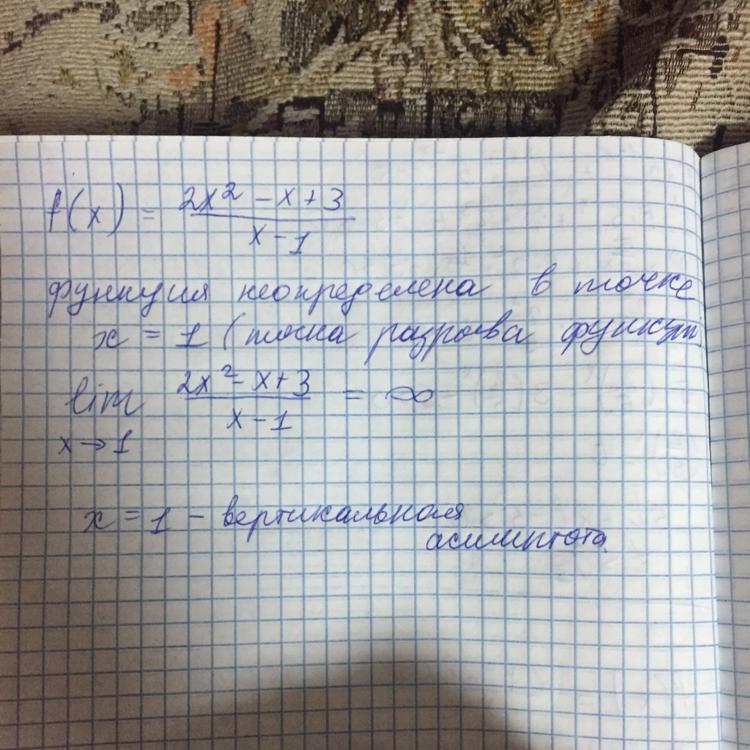 f(x) = (2x² - x + 3)/(x - 1)
функция неопределена в точке
x = 1 (точка разрыва функции)
lim x→1 (2x² - x + 3)/(x - 1) = ∞
x = 1 - вертикальная
асимптота.